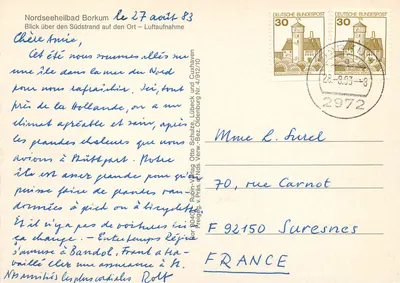 Nordseeheilbad Borkum
Blick über den Südstrand auf den Ort – Luftaufnahme
le 27 août 83
Chère Amie,
Cet été nous sommes allés sur
une île dans la mer du Nord
pour nous rafraîchir. Ici, tout
près de la Hollande, on a un
climat agréable et sain, après
les grandes chaleurs que nous
avions à Stuttgart. Notre
île est assez grande pour qu'on
puisse faire de grandes ran-
données à pied ou à bicyclette.
Et il n'y a pas de voitures ici,
ça change. – Entretemps Régine
s'amuse à Bandol, Frank a tra-
vaillé chez une assurance à St.
Nos amitiés les plus cordiales Rolf
Rubin-Verlag Otto Schulze, Lübeck und Cuxhaven
Freigeg. v. Präs. d. Nds. Verw.-Bez. Oldenburg Nr. 4/912/10
DEUTSCHE BUNDESPOST
30
DEUTSCHE BUNDESPOST
30
2972
Mme L. Surel
70, rue Carnot
F 92150 Suresnes
FRANCE